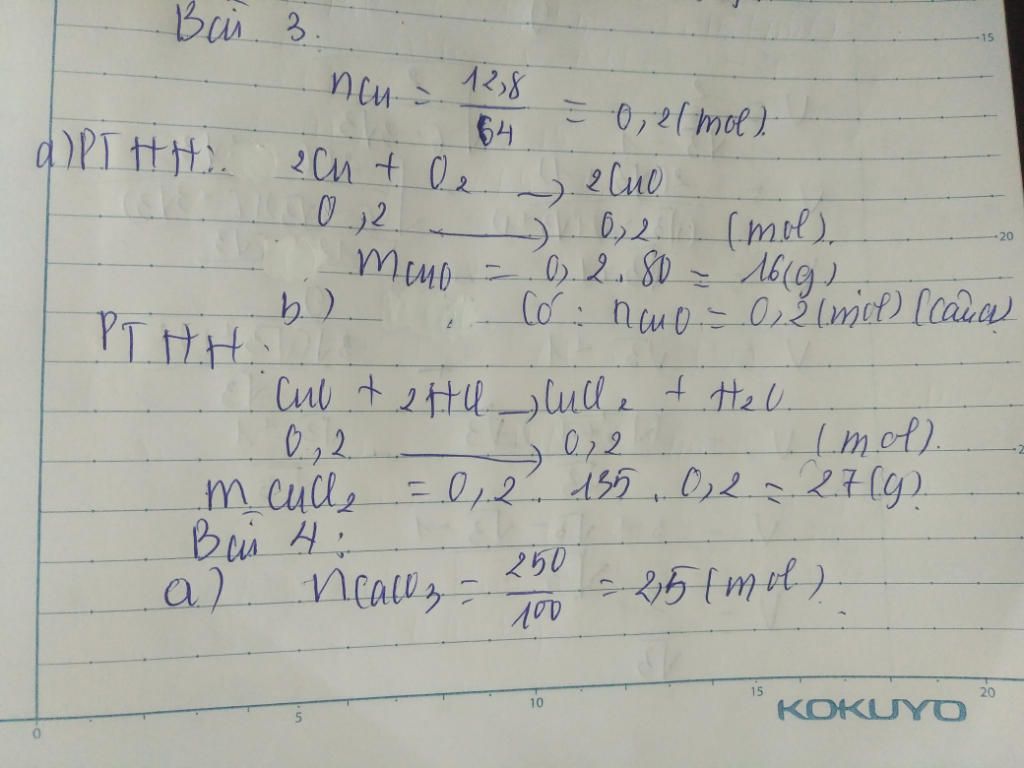 Bài 3.
nCu = 12,8/64 = 0,2(mol).
a) PTHH: 2Cu + O2 → 2CuO
0,2 → 0,2 (mol).
mCuO = 0,2.80 = 16(g)
b) Có: nCuO = 0,2(mol) (câu a)
PTHH:
CuO + 2HCl → CuCl2 + H2O
0,2 → 0,2 (mol).
mCuCl2 = 0,2.135.0,2 = 27(g).
Bài 4:
a) nCaCO3 = 250/100 = 2,5(mol).
0 5 10 15 20
15
20
KOKUYO